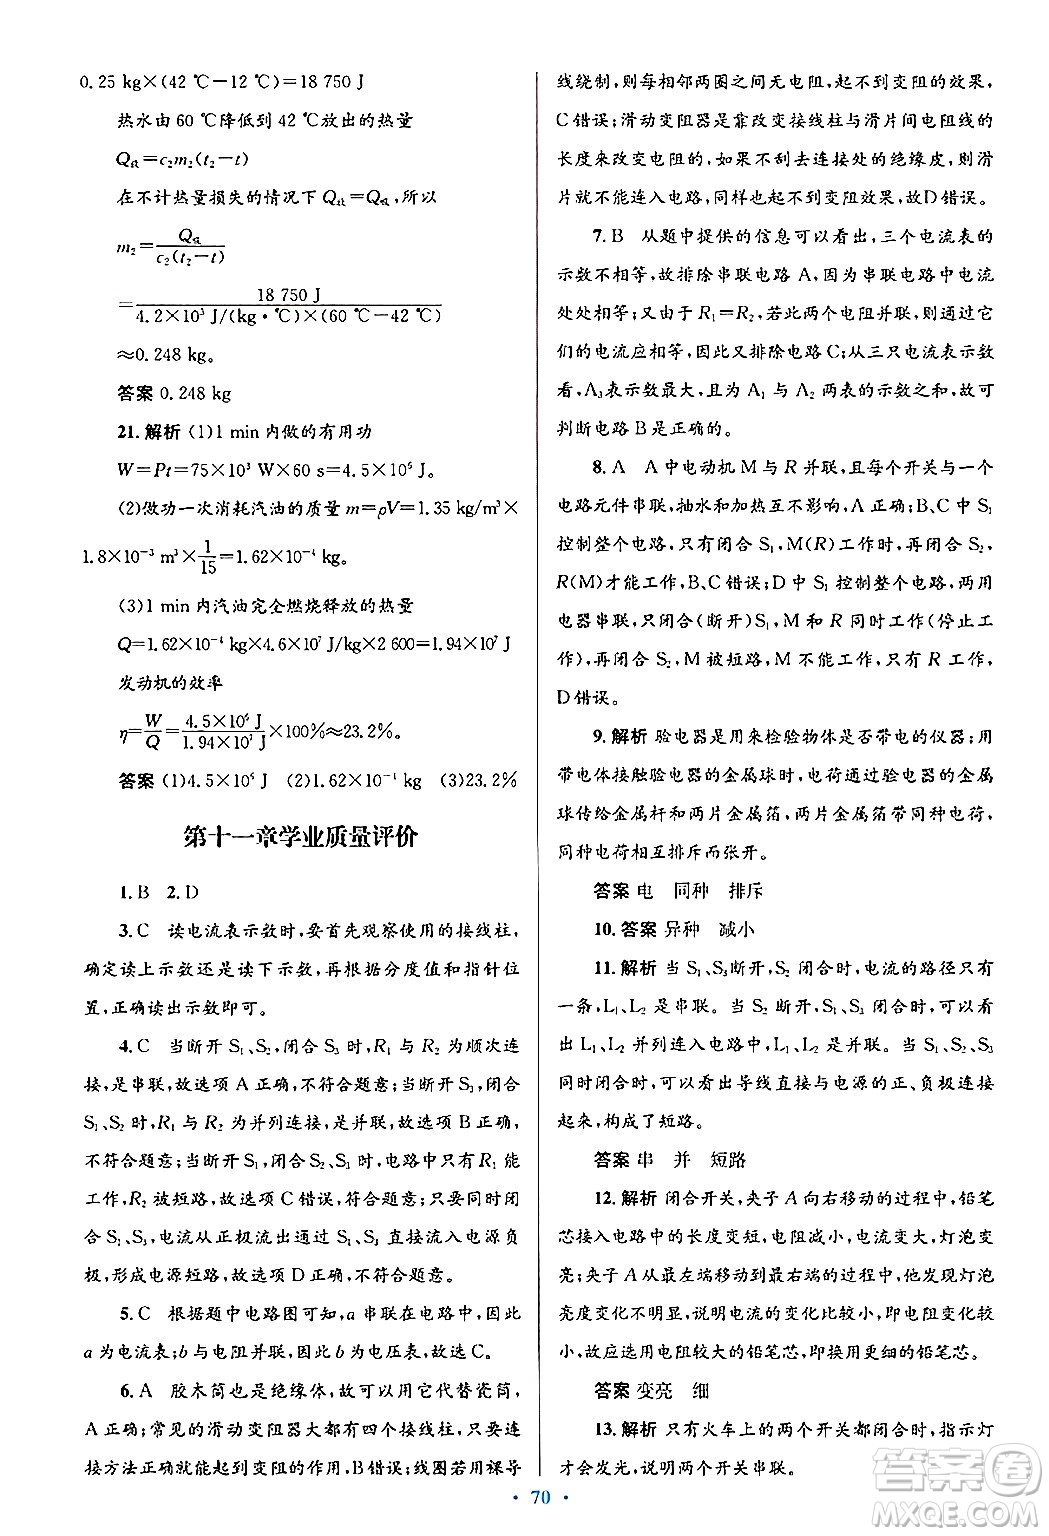 0.25 kg×(42 ℃−12 ℃)=18 750 J
热水由 60 ℃降低到 42 ℃放出的热量
Q放=c₂m₂(t₂−t)
在不计热量损失的情况下 Q放=Q吸,所以
m₂=Q吸/c₂(t₂−t)
=18 750 J/4.2×10³ J/(kg·℃)×(60 ℃−42 ℃)
≈0.248 kg。
答案 0.248 kg
21.解析 (1)1 min内做的有用功
W=Pt=75×10³ W×60 s=4.5×10⁶ J。
(2)做功一次消耗汽油的质量 m=ρV=1.35 kg/m³×
1.8×10⁻³ m³×1/15=1.62×10⁻⁴ kg。
(3)1 min内汽油完全燃烧释放的热量
Q=1.62×10⁻⁴ kg×4.6×10⁷ J/kg×2 600=1.94×10⁷ J
发动机的效率
η=W/Q=4.5×10⁶ J/1.94×10⁷ J×100%≈23.2%。
答案 (1)4.5×10⁶ J (2)1.62×10⁻⁴ kg (3)23.2%
第十一章学业质量评价
1.B 2.D
3.C 读电流表示数时,要首先观察使用的接线柱,
确定读上示数还是读下示数,再根据分度值和指针位
置,正确读出示数即可。
4.C 当断开 S₁、S₂,闭合 S₃时,R₁与 R₂为顺次连
接,是串联,故选项 A 不符合题意;当断开 S₃,闭合
S₁、S₂时,R₁与 R₂为并列连接,是并联,故选项 B 正确,
不符合题意;当断开 S₁,闭合 S₂、S₃时,电路中只有 R₁能
工作,R₂被短路,故选项 C 错误,符合题意;当同时闭
合 S₁、S₂、S₃时,电流从正极流出后直接流入电源负
极,形成电源短路,故选项 D 正确,不符合题意。
5.C 根据题中电路图可知,a 串联在电路中,因此
a 为电流表;b 与电阻并联,因此 b 为电压表,故选 C。
6.A 胶木筒是绝缘体,故可以用它代替瓷筒,
A 正确;常见的滑动变阻器大都有四个接线柱,只要连
接方法正确就能起到变阻的作用,B错误;线圈若用裸导
线绕制,则每相邻两圈之间无电阻,起不到变阻的效果,
C 错误;滑动变阻器是靠改变接线柱与滑片间电阻线的
长度来改变电阻的,如果不刮去连接处的绝缘皮,则滑
片就不能连入电路,同样也起不到变阻效果,故D错误。
7.B 从题中提供的信息可以看出,三个电流表的
示数不相等,故排除串联电路 A,因为串联电路中电流
处处相等;又由于 R₁=R₂,若此两个电阻并联,则通过它
们的电流应相等,因此又排除电路 C;从三只电流表示数
看,A₃表示数最大,且等于 A₁ 与 A₂ 两表的示数之和,故可
判断电路 B 是正确的。
8.A A 中电动机 M 与 R 并联,且每个开关与一个
电路元件串联,抽水和加热互不影响,A 正确;B、C 中 S₁
控制整个电路,只有闭合 S₁,M(R)工作时,再闭合 S₂,
R(M)才能工作,B、C 错误;D 中 S₁ 控制整个电路,两用
电器串联,只闭合(断开)S₁,M 和 R 同时工作(停止工
作),再闭合 S₂,M 被短路,M 不能工作,只有 R 工作,
D错误。
9.解析 验电器是用来检验物体是否带电的仪器;用
带电体接触验电器的金属球时,电荷通过验电器的金属
球传给金属杆和两片金属箔,两片金属箔带同种电荷,
同种电荷相互排斥而张开。
答案 电 同种 排斥
10.答案 异种 减小
11.解析 当 S₁、S₃断开,S₂ 闭合时,电流的路径只有
一条,L₁、L₂ 是串联。当 S₂ 断开,S₁、S₃ 闭合时,可以看
出 L₁、L₂ 并列连入电路中,是并联。当 S₁、S₂、S₃
同时闭合时,可以看出导线直接与电源的正、负极连接
起来,构成了短路。
答案 串 并 短路
12.解析 闭合开关,夹子 A 向右移动的过程中,铅笔
芯接入电路中的长度变短,电阻减小,电流变大,灯泡变
亮;夹子 A 从最左端移动到最右端的过程中,发现灯泡
亮度变化不明显,说明电流的变化比较小,即电阻变化较
小,故应选用电阻较大的铅笔芯,即换用更细的铅笔芯。
答案 变亮 细
13.解析 只有火车上的两个开关都闭合时,指示灯
才会发光,说明两个开关串联。
· 70 ·
答案圈
MXQE.COM